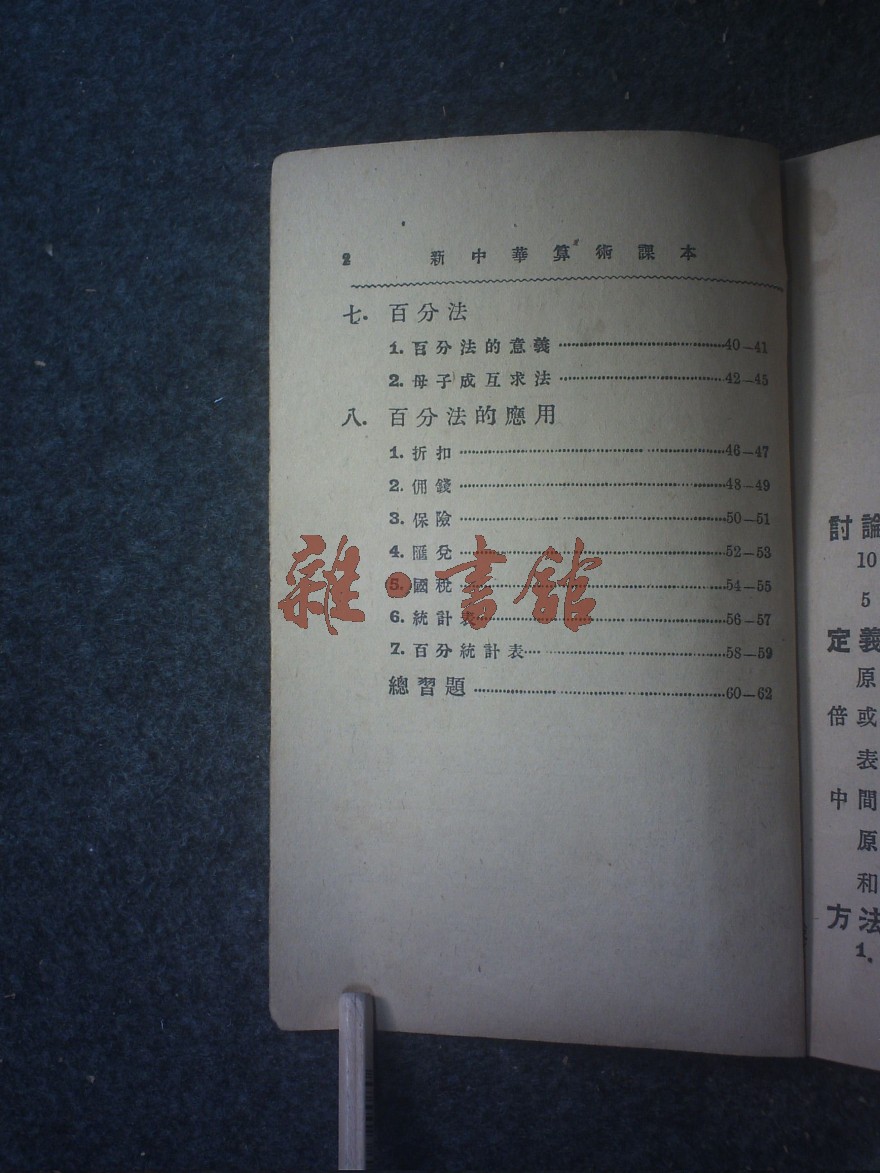 2 新中華算術課本
七. 百分法
1. 百分法的意義 40—41
2. 母子成互求法 42—45
八. 百分法的應用
1. 折扣 46—47
2. 佣錢 48—49
3. 保險 50—51
4. 匯兌 52—53
5. 國稅 54—55
6. 統計表 56—57
7. 百分統計表 58—59
總習題 60—62
雜·書館
討論
10
5
定義
原
倍或
表
中間
原
和
方法
1.